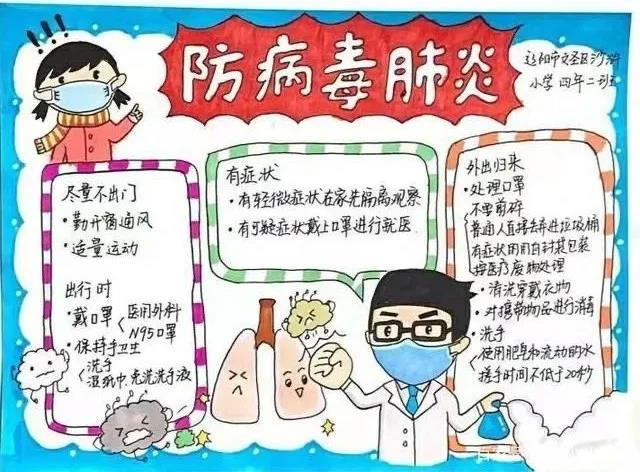 防病毒肺炎
辽阳市文圣区沙浒
小学四年二班
尽量不出门
·勤开窗通风
·适量运动
出行时
·戴口罩
医用外科
N95口罩
·保持手卫生
洗手
免洗洗手液
有症状
·有轻微症状在家先隔离观察
·有可疑症状戴上口罩进行就医
外出归来
·处理口罩
不要剪碎
普通人直接丢弃进垃圾桶
有症状用用自封袋包装
按医疗废物处理
·清洗穿戴衣物
·对携带物品进行消毒
·洗手
使用肥皂和流动的水
搓手时间不低于20秒